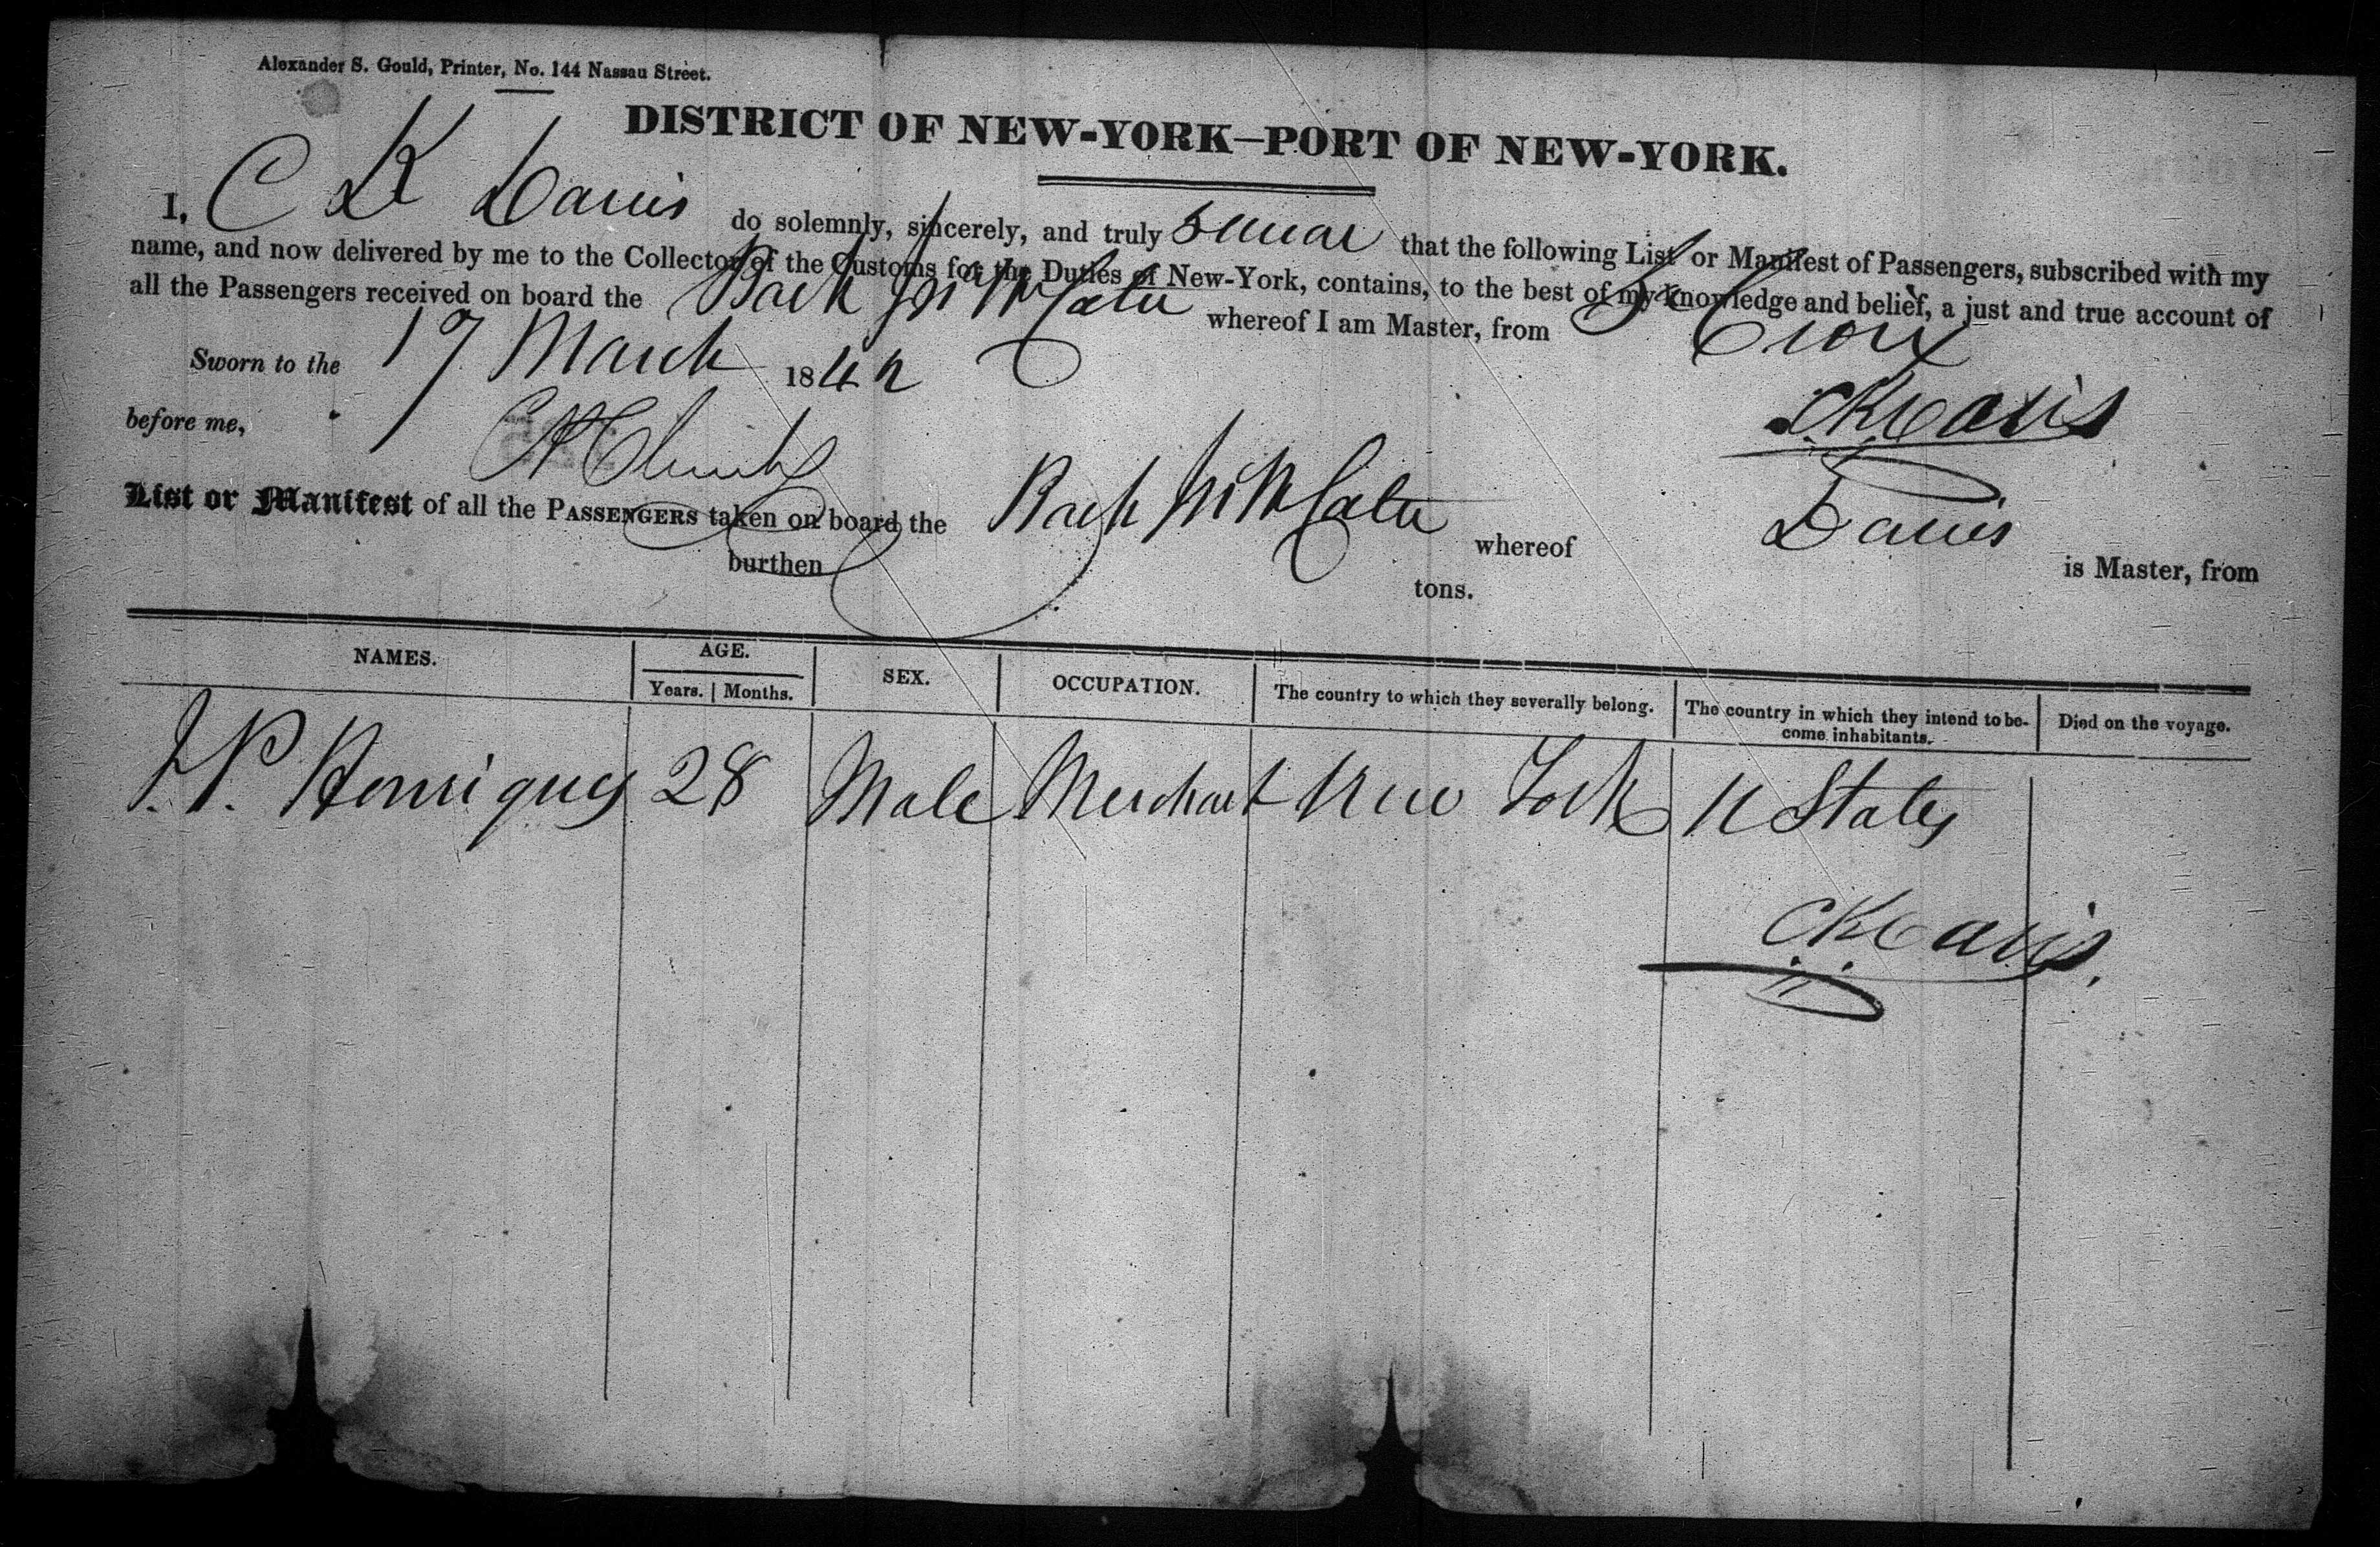 Alexander S. Gould, Printer, No. 144 Nassau Street.
DISTRICT OF NEW-YORK—PORT OF NEW-YORK.
I, C K Davis do solemnly, sincerely, and truly swear that the following List or Manifest of Passengers, subscribed with my
name, and now delivered by me to the Collector of the Customs for the Duties of New-York, contains, to the best of my knowledge and belief, a just and true account of
all the Passengers received on board the Bark whereof I am Master, from St Croix
Sworn to the 17 March 1842
before me, CK Davis
List or Manifest of all the PASSENGERS taken on board the Bark whereof Davis is Master, from
burthen tons.
NAMES. AGE. SEX. OCCUPATION. The country to which they severally belong. The country in which they intend to be- Died on the voyage.
Years. Months. come inhabitants.
J. P. Henriques 28 Male Merchant New York U States
CK Davis.